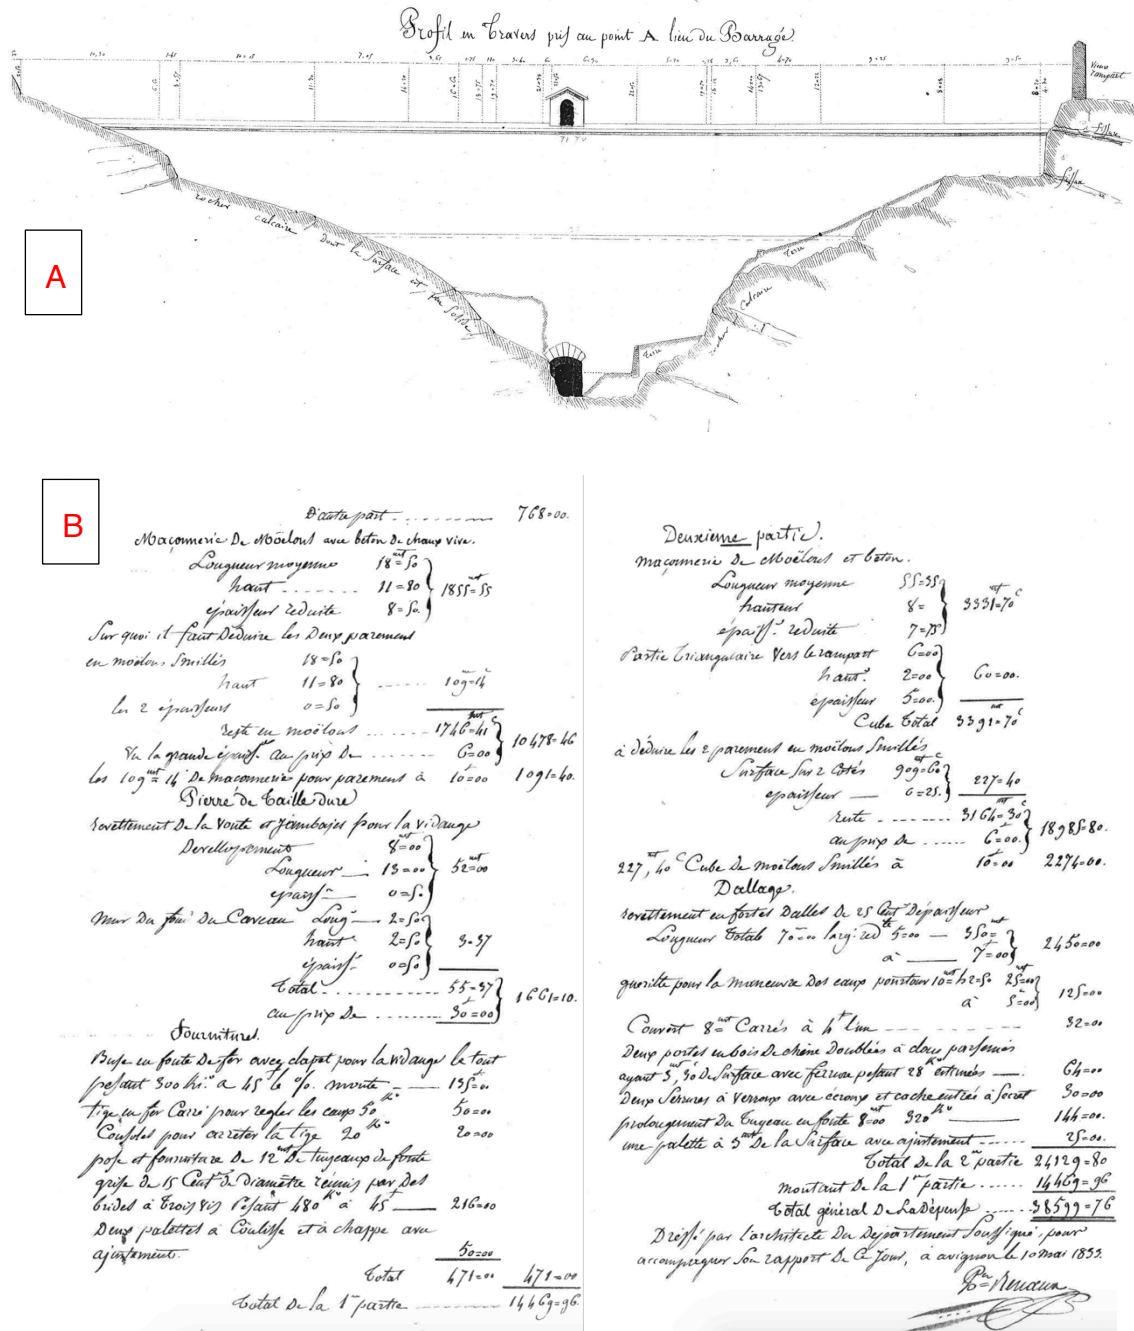 Profil en travers pris au point A lieu du Barrage
vieux
rempart
fissure
fissure
rocher calcaire dont la surface est peu solide
terre
terre
rocher calcaire
A
B
D'autre part 768=00.
Maçonnerie De Moëlons avec béton De chaux vive.
Longueur moyenne 18=50
haut 11=80 1855=55
épaisseur réduite 8=50.
Sur quoi il faut Déduire les Deux parement
en moëlons Smillés 18=50
haut 11=80 109=14
les 2 épaisseurs 0=50
reste en moëlons 1746=41
Vu la grande épaiss. au prix De 6=00 10478=46
les 109=14 De maçonnerie pour parement à 10=00 1091=40.
Pierre de taille dure
revettement De la voute et Jambages pour la vidange
Devellopement 8=00
Longueur 13=00 52=00
épaiss. 0=50
Mur Du fond Du Caveau Long. 2=50
haut 2=50 3=37
épaiss. 0=50
Total 55=37
au prix De 30=00 1661=10.
Fournitures.
Buse en fonte De fer avec clapet pour la vidange le tout
pesant 300 Ki. a 45 le %. monte 135=00
tige en fer Carré pour regler les eaux 50 Ko 50=00
Consoles pour arreter la tige 20 Ko 20=00
pose et fourniture De 12 mt De tuyeaux de fonte
grise de 15 Cent. De Diamètre réunis par Des
brides à trois vis Pesant 480 K à 45 216=00
Deux palettes à Coulisse et à chappe avec
ajustement. 50=00
Total 471=00 471=00
Total De la 1re partie 14469=96
Deuxieme partie.
maçonnerie De Moëlons et béton.
Longueur moyenne 55=35
hauteur 8= 3331=70
épaiss. réduite 7=75
Partie triangulaire vers le rampart 6=00
haut. 2=00 60=00.
épaisseur 5=00.
Cube Total 3391=70
à déduire les 2 parement en moëlons Smillés
Surface Sur 2 Cotés 909=60 227=40
épaisseur 0=25.
reste 3164=30
au prix De 6=00. 18985=80.
227, 40 Cube De moëlons Smillés à 10=00 2274=00.
Dallage.
revettement en fortes Dalles De 25 Cent. D'épaisseur
Longueur Totale 70=00 larg. red. 5=00 350=
à 7=00 2450=00
gueritte pour la manœuvre Des eaux pourtour 10= h 2=50 25=00
à 5=00 125=00
Couvert 8= Carrés à 4 l'un 32=00
Deux portes en bois De chêne Doublées à clous parsemés
ayant 3, 30 De Surface avec ferrure pesant 28 Ko estimées 64=00
Deux Serrures à verroux avec écroux et cache entrée à Secret 30=00
prolongement Du tuyeau en fonte 8=00 320 Ko 144=00.
une palette à 5 De la Surface avec ajustement 25=00.
Total De la 2me partie 24129=80
montant De la 1re partie 14469=96
Total général De La Dépense 38599=76
Dressé par l'architecte Du Département Soussigné pour
accompagner Son rapport De Ce Jour, à avignon le 10 mai 1833.
Renaux